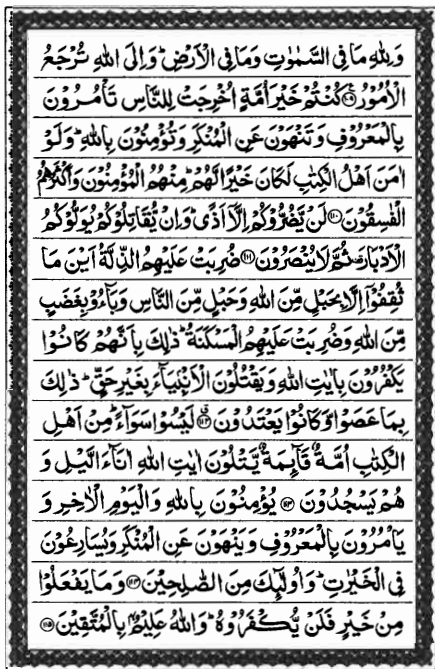 وَلِلّٰهِ مَا فِی السَّمٰوٰتِ وَمَا فِی الْاَرْضِ ؕ وَاِلَی اللّٰهِ تُرْجَعُ
الْاُمُوْرُ ۝۱۰۹ كُنْتُمْ خَیْرَ اُمَّةٍ اُخْرِجَتْ لِلنَّاسِ تَاْمُرُوْنَ
بِالْمَعْرُوْفِ وَتَنْهَوْنَ عَنِ الْمُنْكَرِ وَتُؤْمِنُوْنَ بِاللّٰهِ ؕ وَلَوْ
اٰمَنَ اَهْلُ الْكِتٰبِ لَكَانَ خَیْرًا لَّهُمْ ؕ مِنْهُمُ الْمُؤْمِنُوْنَ وَاَكْثَرُهُمُ
الْفٰسِقُوْنَ ۝۱۱۰ لَنْ یَّضُرُّوْكُمْ اِلَّاۤ اَذًی ؕ وَاِنْ یُّقَاتِلُوْكُمْ یُوَلُّوْكُمُ
الْاَدْبَارَ ۫ ثُمَّ لَا یُنْصَرُوْنَ ۝۱۱۱ ضُرِبَتْ عَلَیْهِمُ الذِّلَّةُ اَیْنَ مَا
ثُقِفُوْۤا اِلَّا بِحَبْلٍ مِّنَ اللّٰهِ وَحَبْلٍ مِّنَ النَّاسِ وَبَآءُوْ بِغَضَبٍ
مِّنَ اللّٰهِ وَضُرِبَتْ عَلَیْهِمُ الْمَسْكَنَةُ ؕ ذٰلِكَ بِاَنَّهُمْ كَانُوْا
یَكْفُرُوْنَ بِاٰیٰتِ اللّٰهِ وَیَقْتُلُوْنَ الْاَنْۢبِیَآءَ بِغَیْرِ حَقٍّ ؕ ذٰلِكَ
بِمَا عَصَوْا وَّكَانُوْا یَعْتَدُوْنَ ۝۱۱۲ لَیْسُوْا سَوَآءً ؕ مِنْ اَهْلِ
الْكِتٰبِ اُمَّةٌ قَآئِمَةٌ یَّتْلُوْنَ اٰیٰتِ اللّٰهِ اٰنَآءَ الَّیْلِ وَ
هُمْ یَسْجُدُوْنَ ۝۱۱۳ یُؤْمِنُوْنَ بِاللّٰهِ وَالْیَوْمِ الْاٰخِرِ وَ
یَاْمُرُوْنَ بِالْمَعْرُوْفِ وَیَنْهَوْنَ عَنِ الْمُنْكَرِ وَیُسَارِعُوْنَ
فِی الْخَیْرٰتِ ؕ وَاُولٰٓئِكَ مِنَ الصّٰلِحِیْنَ ۝۱۱۴ وَمَا یَفْعَلُوْا
مِنْ خَیْرٍ فَلَنْ یُّكْفَرُوْهُ ؕ وَاللّٰهُ عَلِیْمٌۢ بِالْمُتَّقِیْنَ ۝۱۱۵